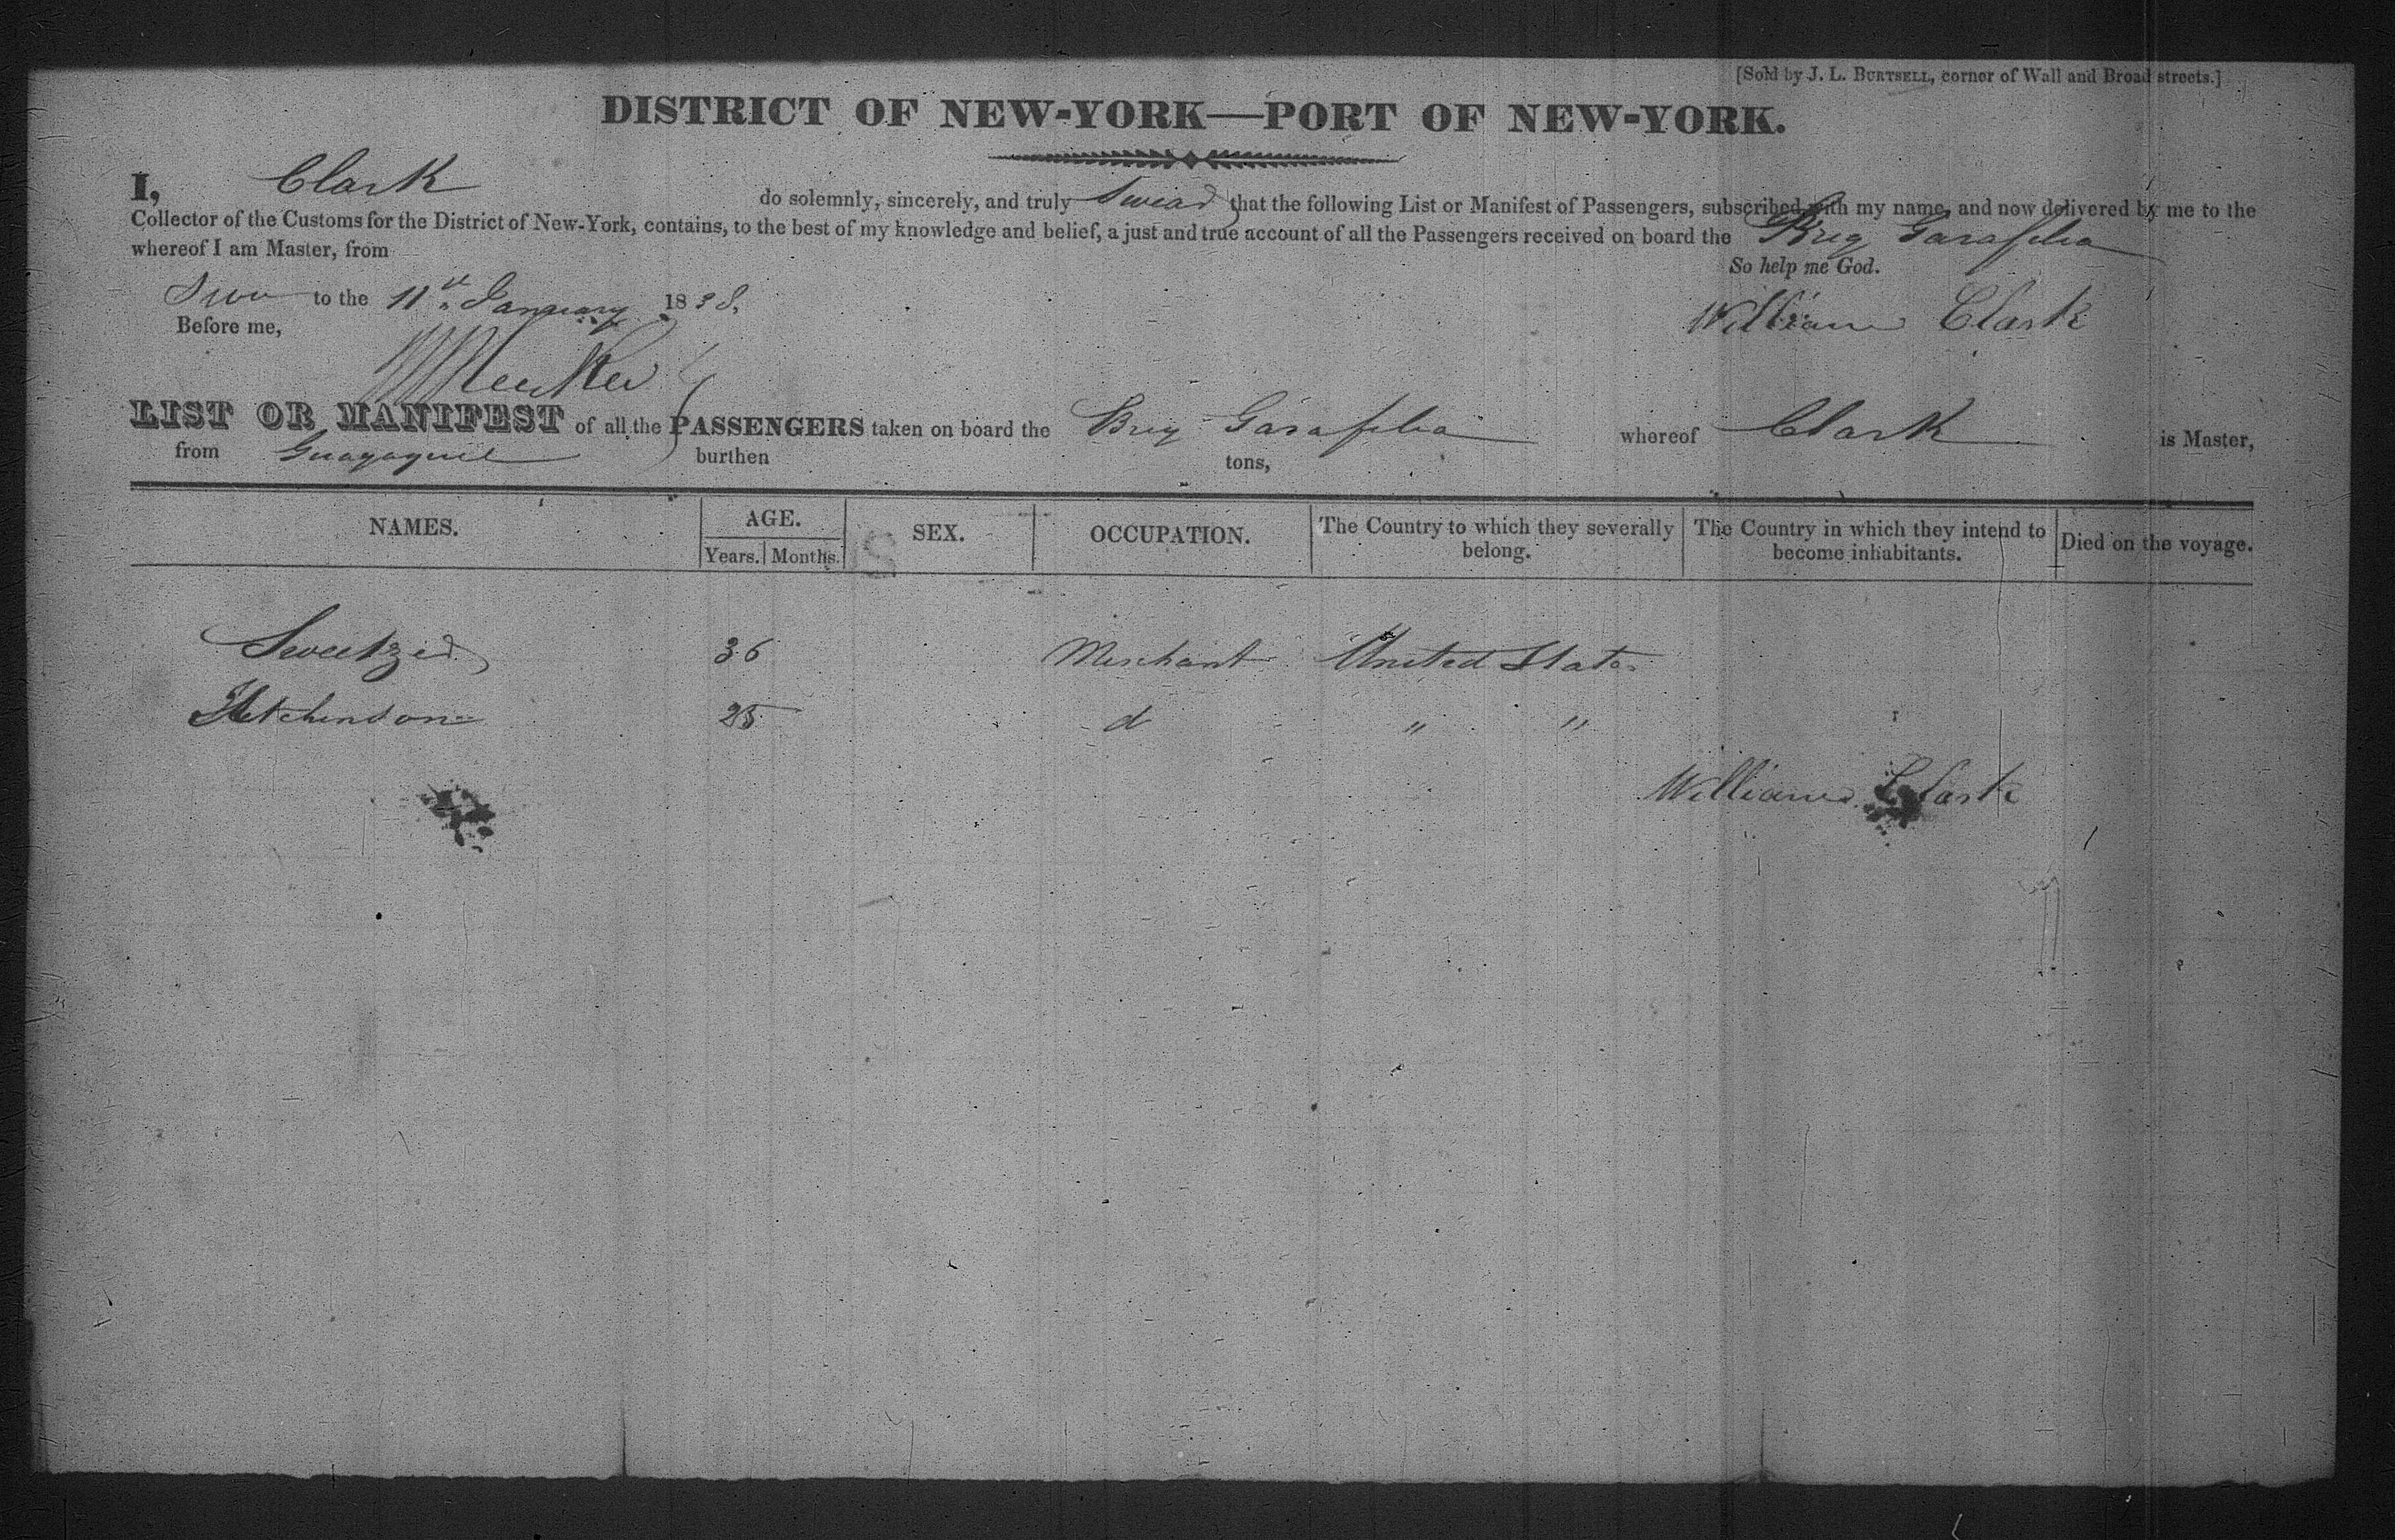 [Sold by J. L. BURTSELL, corner of Wall and Broad streets.]
DISTRICT OF NEW-YORK—PORT OF NEW-YORK.
I, Clark do solemnly, sincerely, and truly Swear that the following List or Manifest of Passengers, subscribed with my name, and now delivered by me to the
Collector of the Customs for the District of New-York, contains, to the best of my knowledge and belief, a just and true account of all the Passengers received on board the Brig Garafelia
whereof I am Master, from
So help me God.
to the 11th January 1838.
William Clark
Before me,
LIST OR MANIFEST of all the PASSENGERS taken on board the Brig Garafelia whereof Clark is Master,
from Guayaquil burthen tons,
NAMES. AGE. SEX. OCCUPATION. The Country to which they severally belong. The Country in which they intend to become inhabitants. Died on the voyage.
Years. Months.
Sweetzer 36 Merchant United States
Hutchinson 25 d " "
William Clark